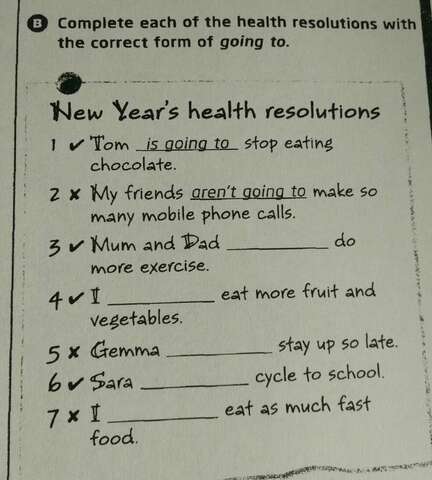 B Complete each of the health resolutions with
the correct form of going to.
New Year's health resolutions
1 ✔ Tom is going to stop eating
chocolate.
2 ✘ My friends aren't going to make so
many mobile phone calls.
3 ✔ Mum and Dad __________ do
more exercise.
4 ✔ I __________ eat more fruit and
vegetables.
5 ✘ Gemma __________ stay up so late.
6 ✔ Sara __________ cycle to school.
7 ✘ I __________ eat as much fast
food.